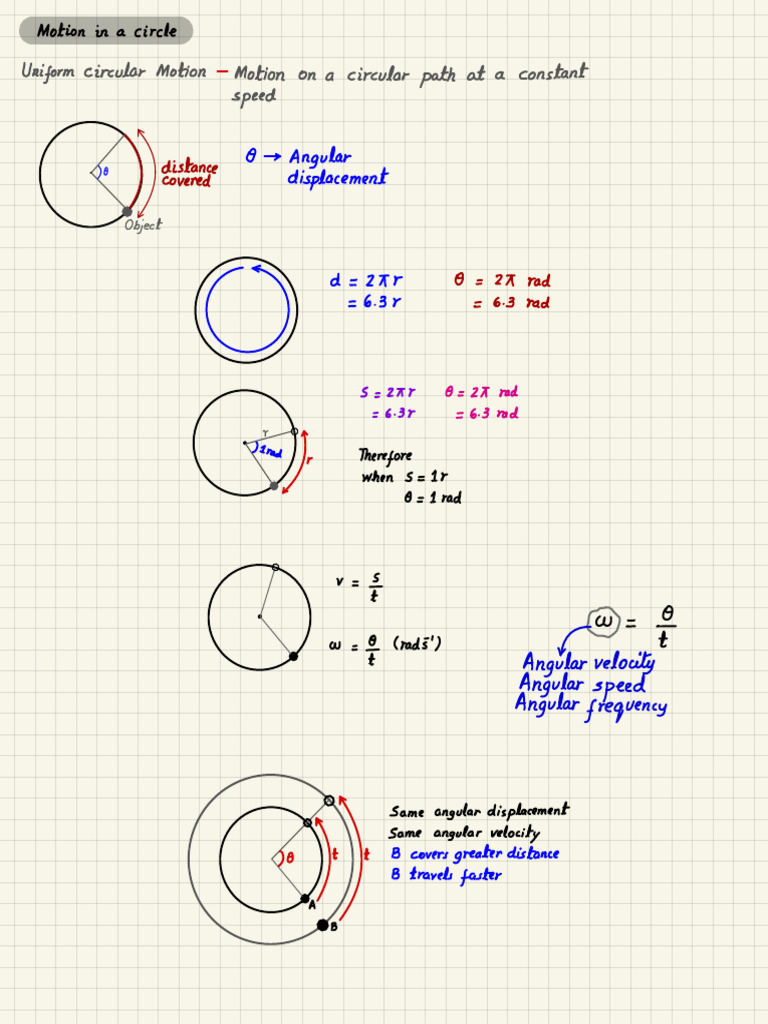 Motion in a circle
Uniform Circular Motion – Motion on a circular path at a constant
speed
θ
distance
covered
Object
θ → Angular
displacement
d = 2πr
= 6.3r
θ = 2π rad
= 6.3 rad
S = 2πr
= 6.3r
θ = 2π rad
= 6.3 rad
r
1 rad
r
Therefore
when S = 1r
θ = 1 rad
v = s/t
ω = θ/t (rads⁻¹)
ω = θ/t
Angular velocity
Angular speed
Angular frequency
θ
t
t
A
B
Same angular displacement
Same angular velocity
B covers greater distance
B travels faster